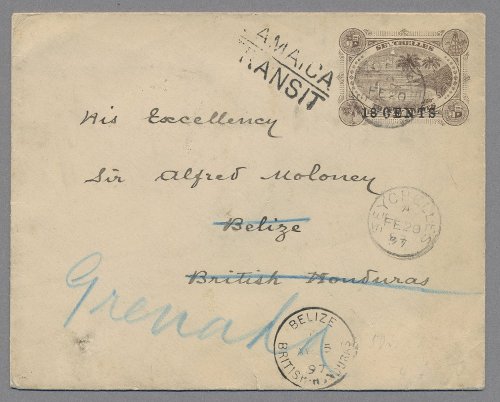 JAMAICA
TRANSIT
SEYCHELLES
18 CENTS
FE 20
His Excellency
Sir Alfred Moloney
Belize
British Honduras
Grenada
SEYCHELLES
A
FE 20
97
BELIZE
97
BRITISH HONDURAS